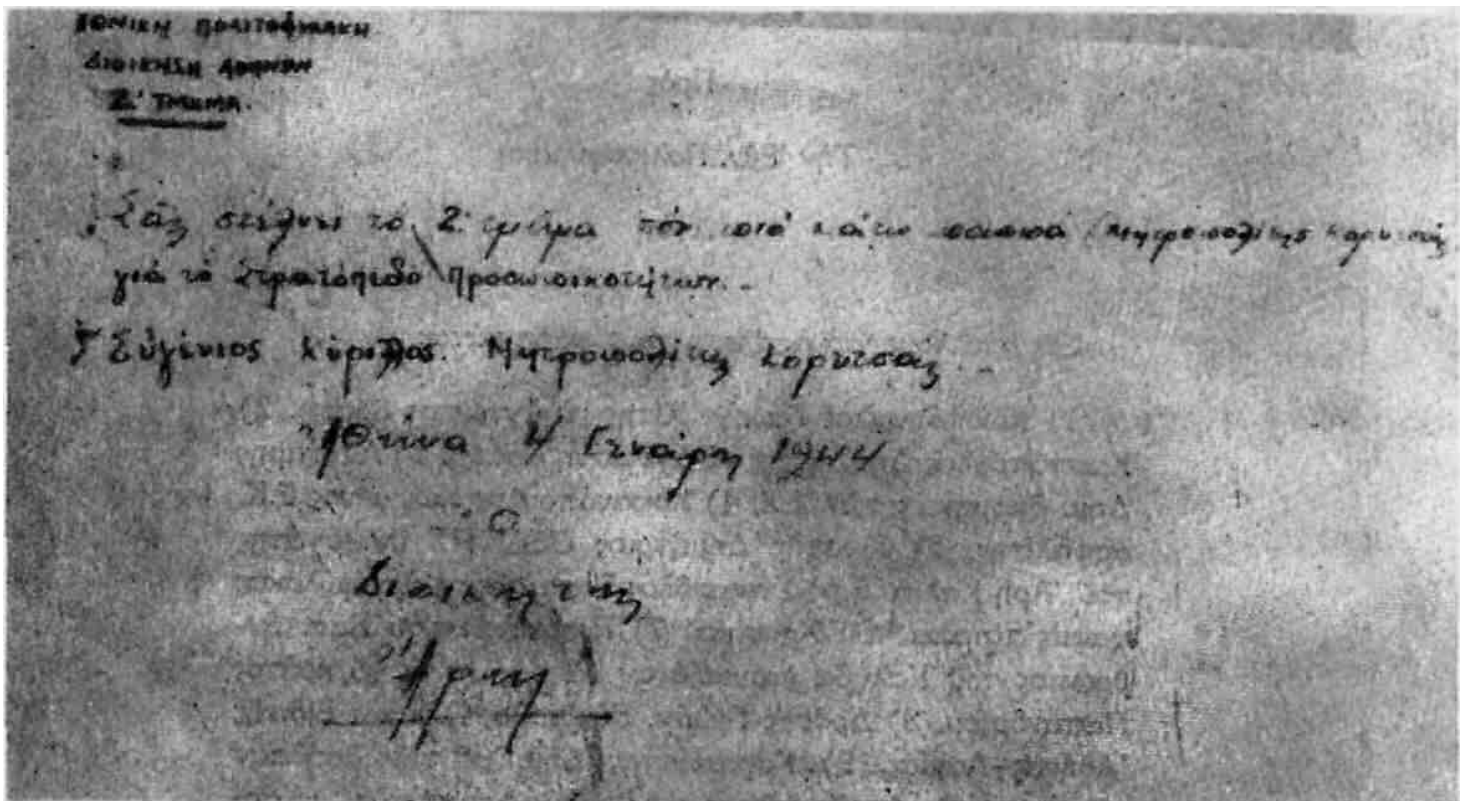 ΕΘΝΙΚΗ ΠΟΛΙΤΟΦΥΛΑΚΗ
ΔΙΟΙΚΗΣΗ ΑΘΗΝΩΝ
Ζ' ΤΜΗΜΑ.
Σᾶς στέλνει τὸ Ζ' τμῆμα τὸν πιὸ κάτω παππᾶ (Μητροπολίτης Κορυτσᾶς
γιὰ τὸ Στρατόπεδο Προσωπικοτήτων.-
Εὐγένιος Κύριλλος. Μητροπολίτης Κορυτσᾶς
Ἀθήνα 4 Γενάρη 1944
Ὁ
Διοικητής
Ἄρης